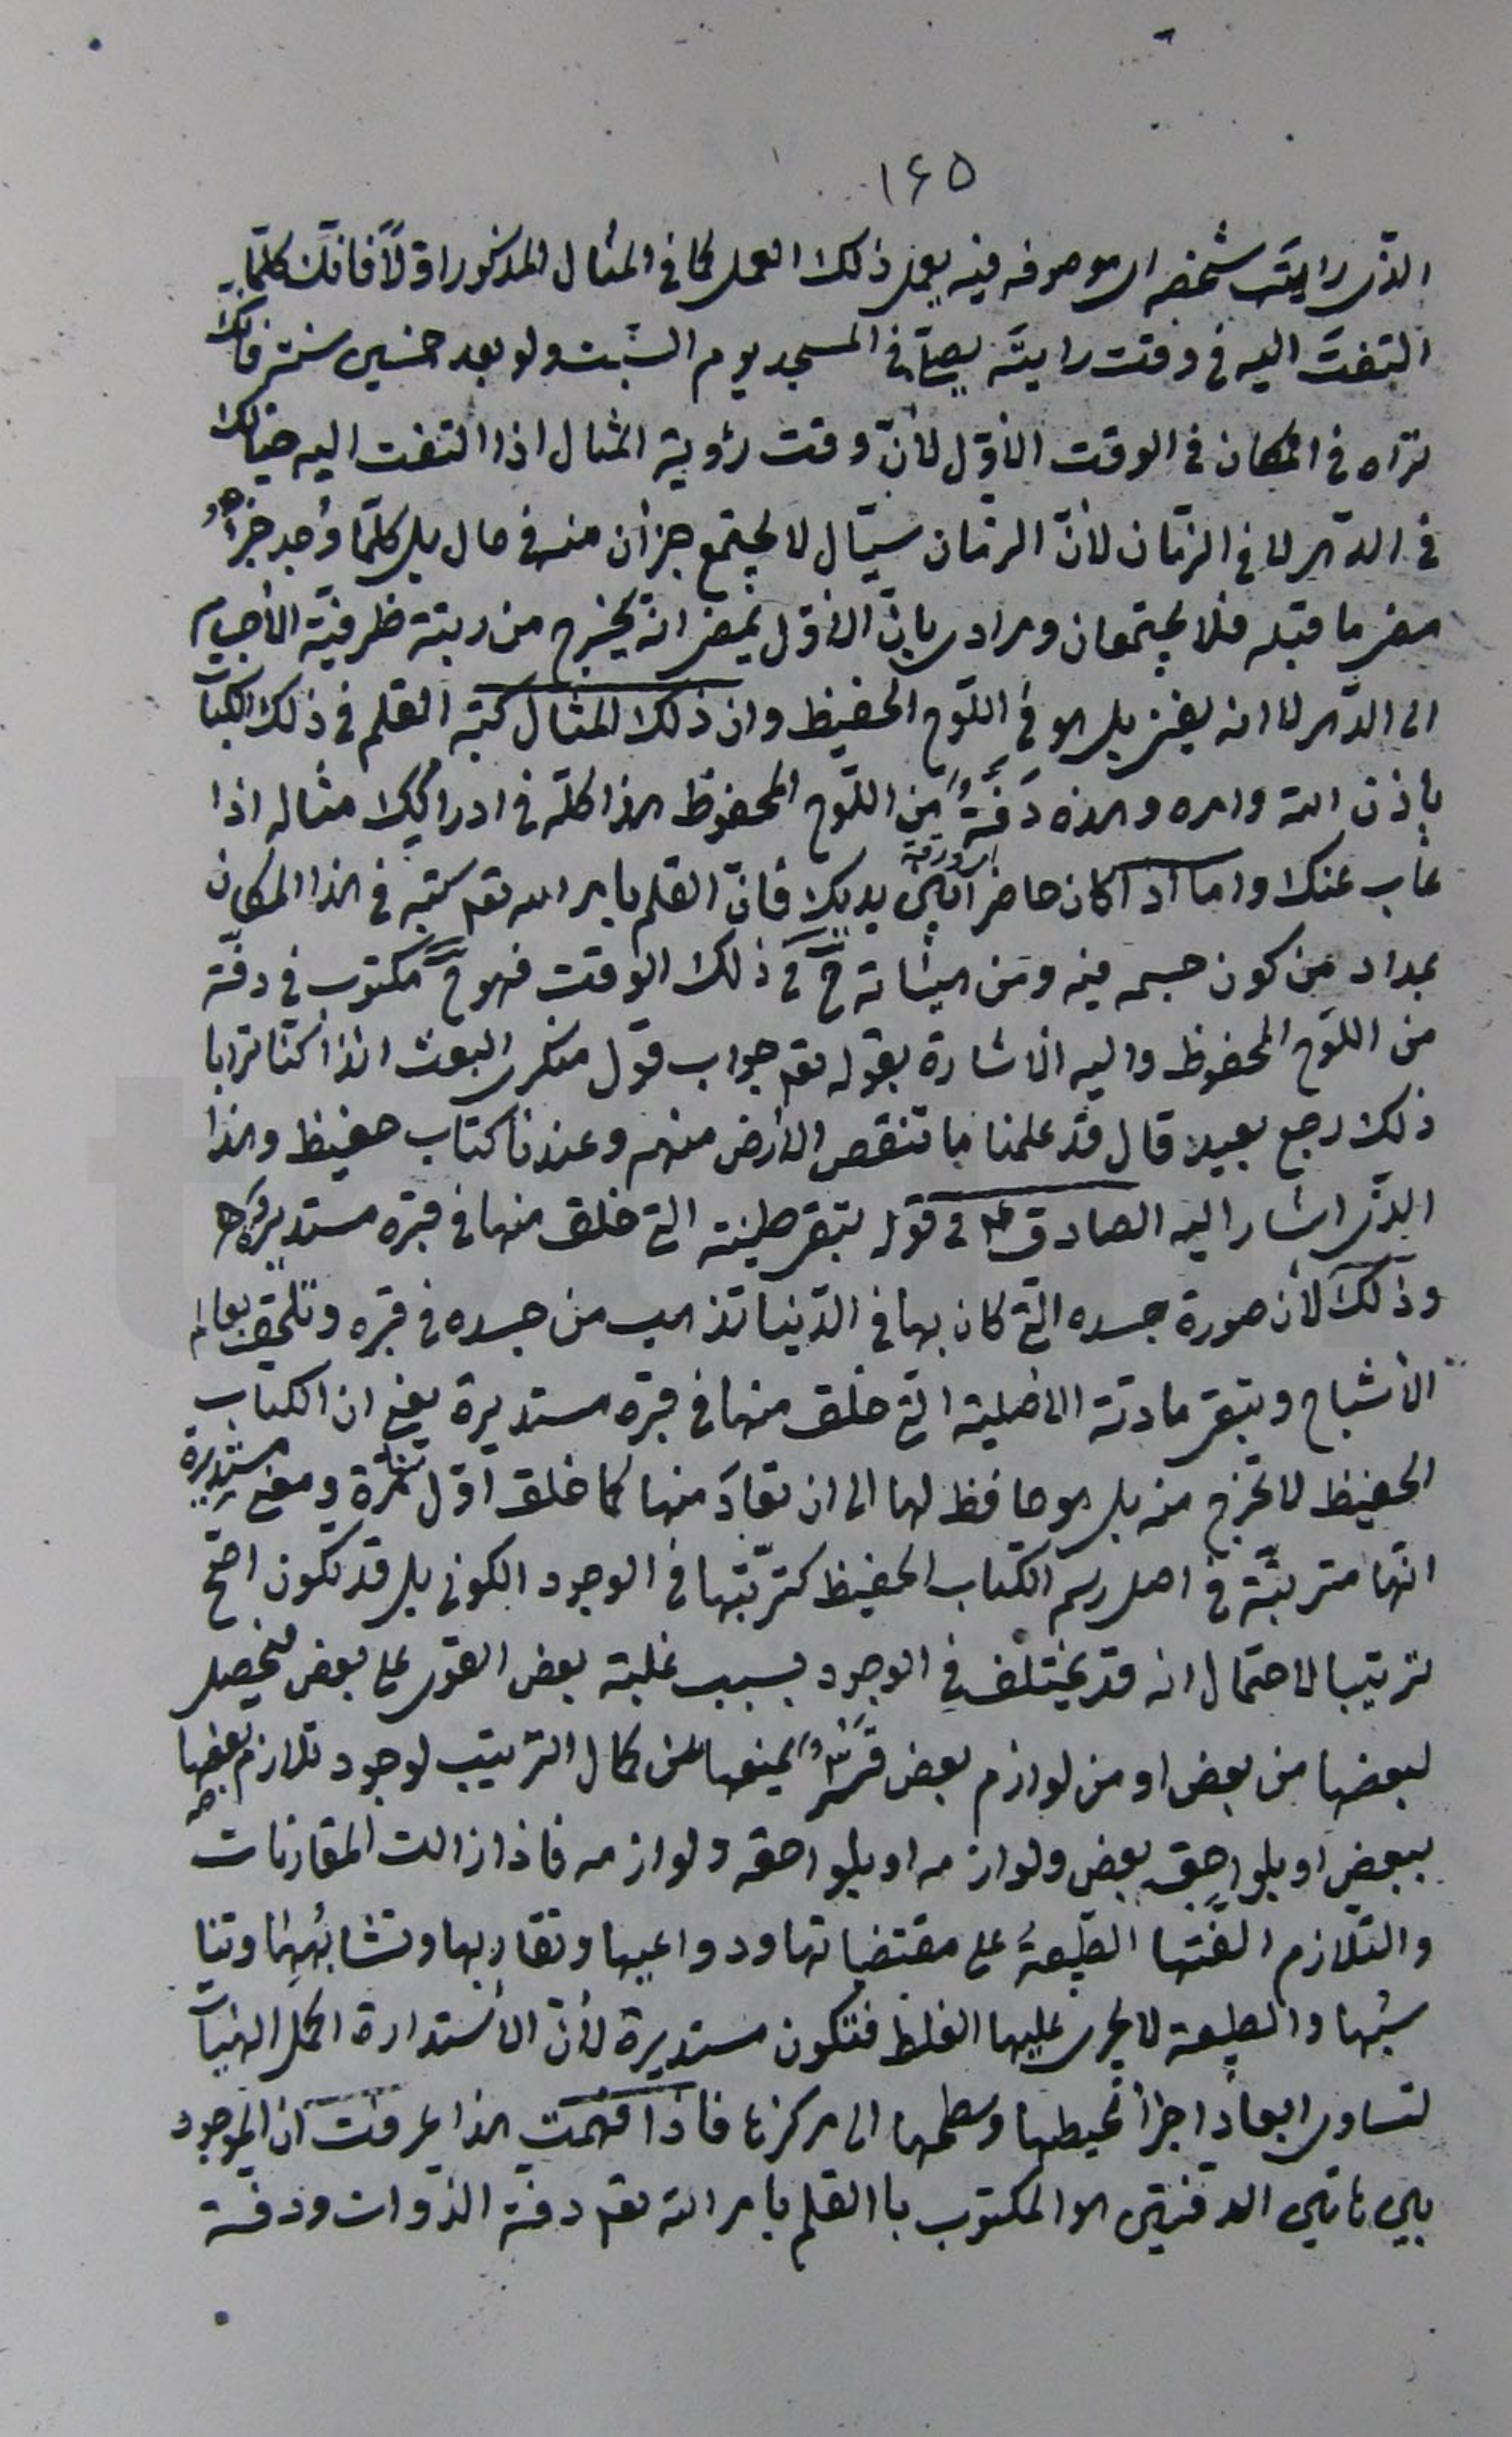 ١٦٥
الذى رايت شخصه او موصوفه فيه يعمل ذلك العمل كما فى المثال المذكور اوّلاً فانّك كلّما
التفتّ اليه فى وقتت رايته يصلّى فى المسجد يوم السّبت ولو بعد خمسين سنة فانّك
تراه فى المكان فى الوقت الأوّل لأنّ وقت رؤية المثال اذا التفت اليه خيالك
فى الدّهر لا فى الزّمان لأنّ الزّمان سيّال لا يجتمع جزأن منه فى حال بل كلّما وُجد جزأ
مضى ما قبله فلا يجتمعان ومرادى بانّ الأوّل يمضى انّه يخرج من رتبة ظرفيّة الأجسام
الى الدّهر لا انه يفنى بل هو فى اللّوح الحفيظ وان ذلك المثال كتبه القلم فى ذلك الكتاب
بإذن الله وامره وهذه دَفّةٌ من اللّوح المحفوظ هذا كلّه فى ادراكك مثاله اذا
غاب عنك واما اذا كان حاضراً بين يديك فانّ القلم بامر الله تعم كتبه فى هذا المكان
بمداد من كون جسمه فيه ومن هيئاته حَ فى ذلك الوقت فهو حَ مكتوب فى دفّة
من اللّوح المحفوظ واليه الأشارة بقوله تعم جواب قول منكرى البعث ائذا كنّا ترابا
ذلك رجع بعيد قال قد علمنا ما تنقص الأرض منهم وعندنا كتاب حفيظ وهذا
الذى اشار اليه الصادق ع فى قوله تبقى طينته التى خلق منها فى قبره مستديرة
وذلك لأن صورة جسده التى كان بها فى الدّنيا تذهب من جسده فى قبره وتلحق بعالم
الأشباح وتبقى مادته الأصلية التى خلق منها فى قبره مستديرة يعنى ان الكتاب
الحفيظ لا تخرج منه بل هو حافظ لها الى ان تعادَ منها كما خلق اوّل مرّة ومعنى مستديرة
انّها مترتبّة فى اصل رسم الكتاب الحفيظ كترتّبها فى الوجود الكونى بل قد تكون اصحّ
ترتيبا لاحتمال انه قد يختلف فى الوجود بسبب غلبة بعض القوى على بعض فيحصل
لبعضها من بعض او من لوازم بعض يمنعها عن كمال الترتيب لوجود تلازم بعضها
ببعض او بلواحق بعض ولوازمه او بلواحقه ولوازمه فاذا زالت المقارنات
والتّلازم الّفتها الطّبيعة على مقتضياتها ودواعيها وتقاربها وتشابُهِها وتنا
سُبها والطبيعة لا يجرى عليها الغلط فتكون مستديرة لأنّ الأستدارة اكمل الهيئات
لتساوى ابعاد اجزأ محيطها وسطحها الى مركزها فاذا فهمت هذا عرفت ان الموجود
بين هاتين الدفّتين هو المكتوب باالقلم بامر الله تعم دفّة الذّوات ودفّة